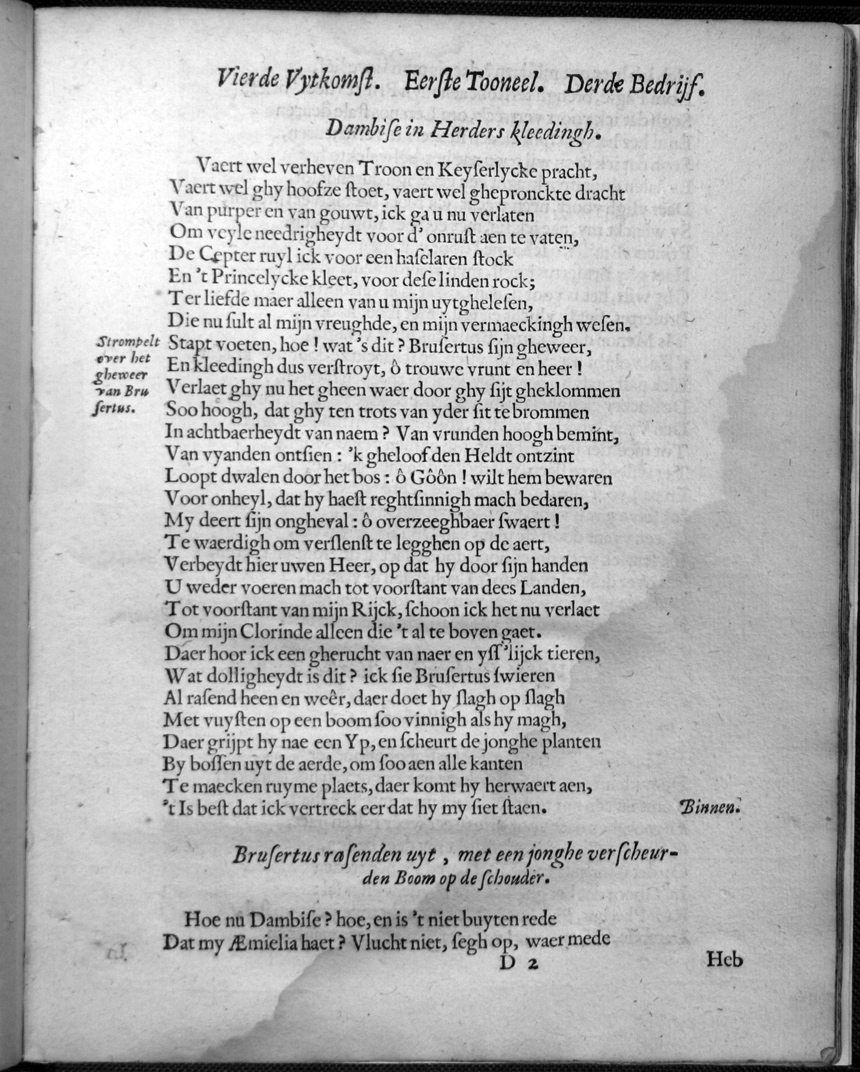 Vierde Vytkomſt. Eerſte Tooneel. Derde Bedrijf.
Dambiſe in Herders kleedingh.
Vaert wel verheven Troon en Keyſerlycke pracht,
Vaert wel ghy hoofze ſtoet, vaert wel ghepronckte dracht
Van purper en van gouwt, ick ga u nu verlaten
Om veyle needrigheydt voor d' onruſt aen te vaten,
De Cepter ruyl ick voor een haſelaren ſtock
En 't Princelycke kleet, voor deſe linden rock;
Ter liefde maer alleen van u mijn uytgheleſen,
Die nu ſult al mijn vreughde, en mijn vermaeckingh weſen.
Strompelt over het gheweer van Bruſertus.
Stapt voeten, hoe! wat 's dit? Bruſertus ſijn gheweer,
En kleedingh dus verſtroyt, ô trouwe vrunt en heer!
Verlaet ghy nu het gheen waer door ghy ſijt gheklommen
Soo hoogh, dat ghy ten trots van yder ſit te brommen
In achtbaerheydt van naem? Van vrunden hoogh bemint,
Van vyanden ontſien: 'k gheloof den Heldt ontzint
Loopt dwalen door het bos: ô Gôôn! wilt hem bewaren
Voor onheyl, dat hy haeſt reghtſinnigh mach bedaren,
My deert ſijn ongheval: ô overzeeghbaer ſwaert!
Te waerdigh om verſlenſt te legghen op de aert,
Verbeydt hier uwen Heer, op dat hy door ſijn handen
U weder voeren mach tot voorſtant van dees Landen,
Tot voorſtant van mijn Rijck, ſchoon ick het nu verlaet
Om mijn Clorinde alleen die 't al te boven gaet.
Daer hoor ick een gherucht van naer en yſſ'lijck tieren,
Wat dolligheydt is dit? ick ſie Bruſertus ſwieren
Al raſend heen en weêr, daer doet hy ſlagh op ſlagh
Met vuyſten op een boom ſoo vinnigh als hy magh,
Daer grijpt hy nae een Yp, en ſcheurt de jonghe planten
By boſſen uyt de aerde, om ſoo aen alle kanten
Te maecken ruyme plaets, daer komt hy herwaert aen,
't Is beſt dat ick vertreck eer dat hy my ſiet ſtaen. Binnen.
Bruſertus raſenden uyt, met een jonghe verſcheur-
den Boom op de ſchouder.
Hoe nu Dambiſe? hoe, en is 't niet buyten rede
Dat my Æmielia haet? Vlucht niet, ſegh op, waer mede
D 2 Heb